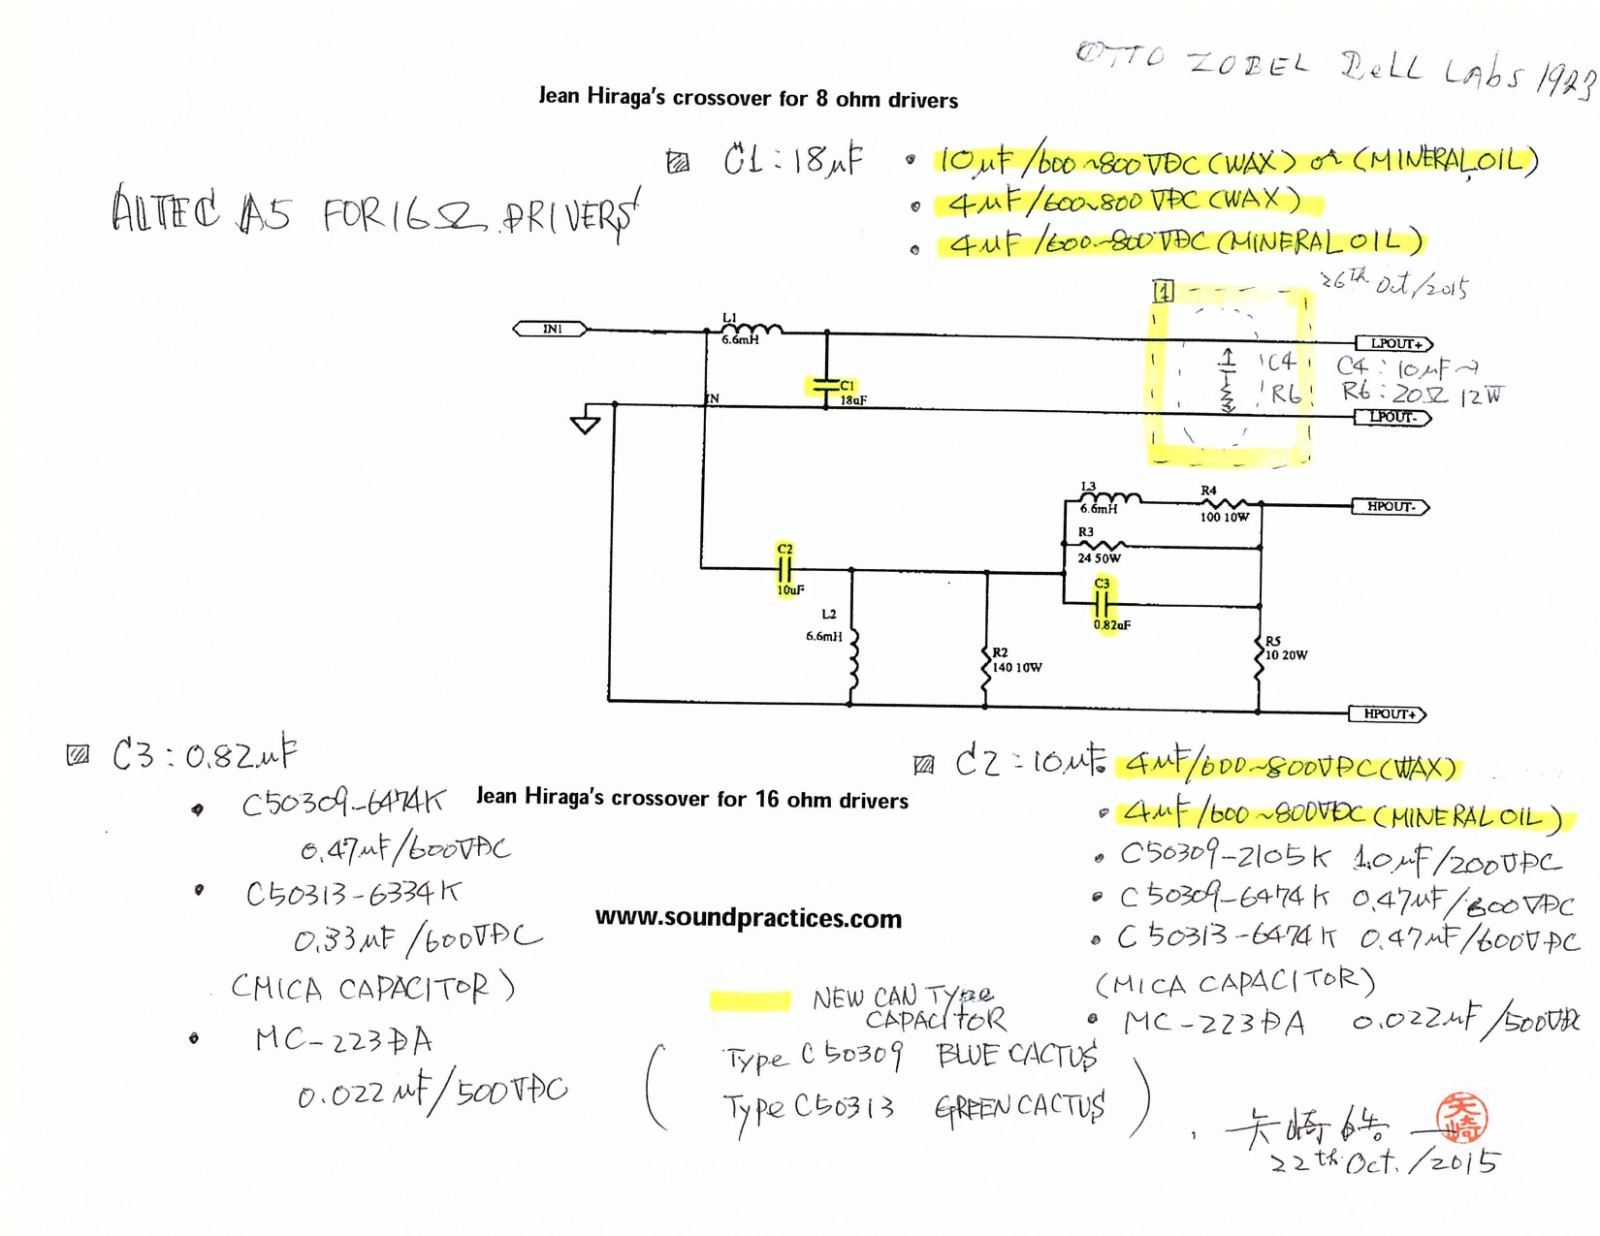 OTTO ZOBEL Bell LAbS 1923
Jean Hiraga's crossover for 8 ohm drivers
C1:18μF
• 10μF/600~800VDC(WAX) or (MINERAL OIL)
• 4μF/600~800VDC(WAX)
• 4μF/600~800VDC(MINERAL OIL)
ALTEC A5 FOR 16Ω DRIVERS
26th Oct/2015
1
IN1
L1
6.6mH
C1
18uF
IN
LPOUT+
C4
R6
C4:10μF~
R6:20Ω 12W
LPOUT-
L3
6.6mH
R4
100 10W
HPOUT-
R3
24 50W
C2
10uF
C3
0.82uF
L2
6.6mH
R2
140 10W
R5
10 20W
HPOUT+
C3:0.82μF
• C50309-6474K
0.47μF/600VDC
• C50313-6334K
0.33μF/600VDC
(MICA CAPACITOR)
• MC-223DA
0.022μF/500VDC
Jean Hiraga's crossover for 16 ohm drivers
www.soundpractices.com
C2:10μF
• 4μF/600~800VDC(WAX)
• 4μF/600~800VDC(MINERAL OIL)
• C50309-2105K 1.0μF/200VDC
• C50309-6474K 0.47μF/600VDC
• C50313-6474K 0.47μF/600VDC
(MICA CAPACITOR)
• MC-223DA 0.022μF/500VDC
NEW CAN TYpe
CAPACITOR
(Type C50309 BLUE CACTUS
Type C50313 GREEN CACTUS)
矢崎
矢崎
22th Oct./2015